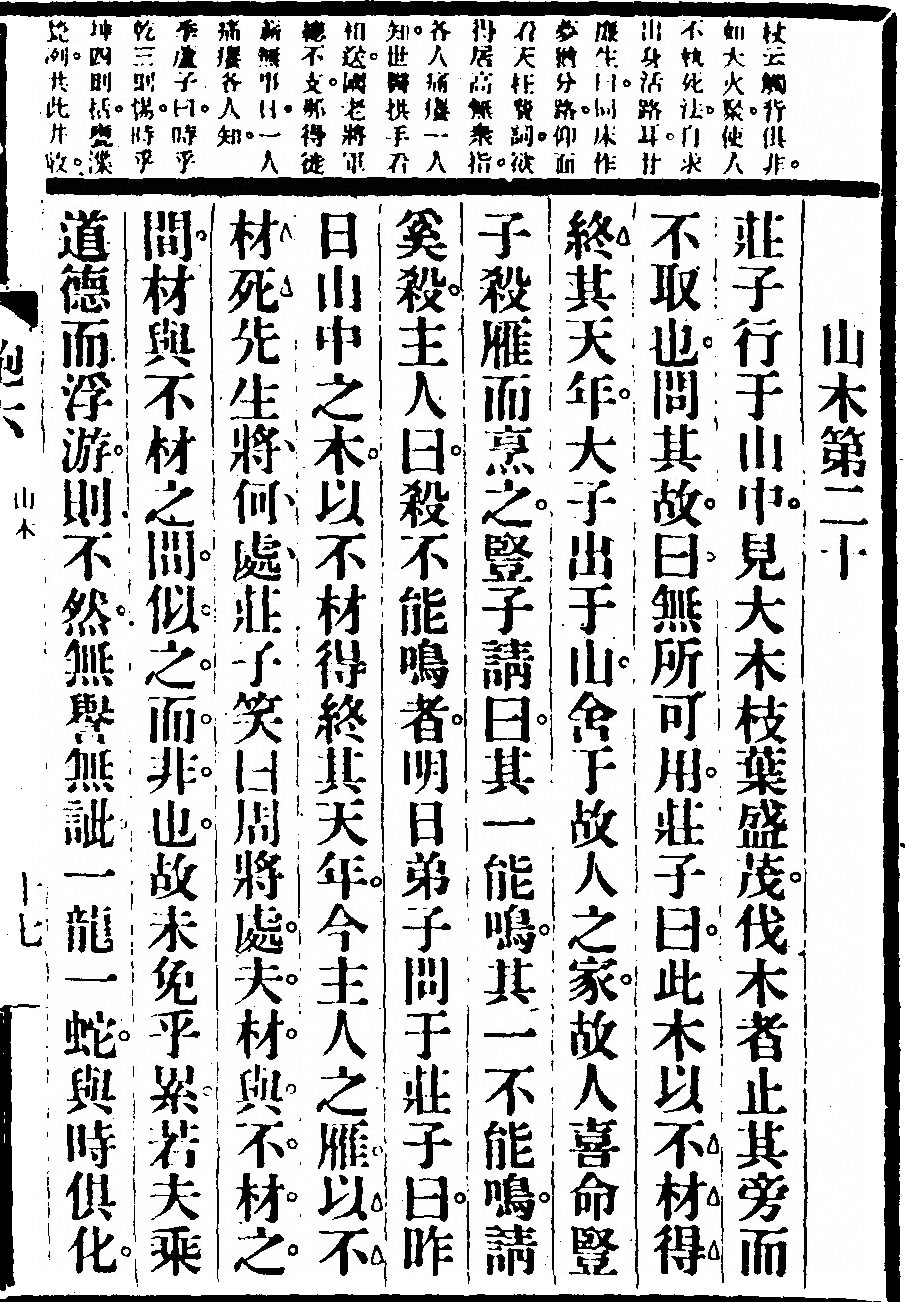 杖云觸背俱非。
如大火聚使人
不執死法自求
出身活路耳
生曰同床作
夢猶分路仰面
看天枉費詞欲
得居高無衆指。
各人痛癢一人
知世醫拱手看
相送。國老將軍
總不支。那得徒
無事曰。一人
痛癢各人知。
季蘆子曰。時乎
乾三則惕。時乎
坤四則括。渫
列共此井收。
山木第二十
莊子行于山中。見大木枝葉盛茂。伐木者止其旁而
不取也。問其故。曰無所可用。莊子曰。此木以不材得
終其天年。大子出于山。舍于故人之家。故人喜命豎
子殺雁而烹之。豎子請曰。其一能鳴。其一不能鳴。請
奚殺。主人曰。殺不能鳴者。明日弟子問于莊子曰。昨
日山中之木。以不材得終其天年。今主人之雁。以不
材死先生將何處莊子笑曰周將處。夫。材。與。不。材。之。
間。材與不材之間。似。之。而。非。也。故未免乎累。若夫乘
道德而浮游。則不然。無譽無訿。一龍一蛇。與時俱化。
六
山木
十七